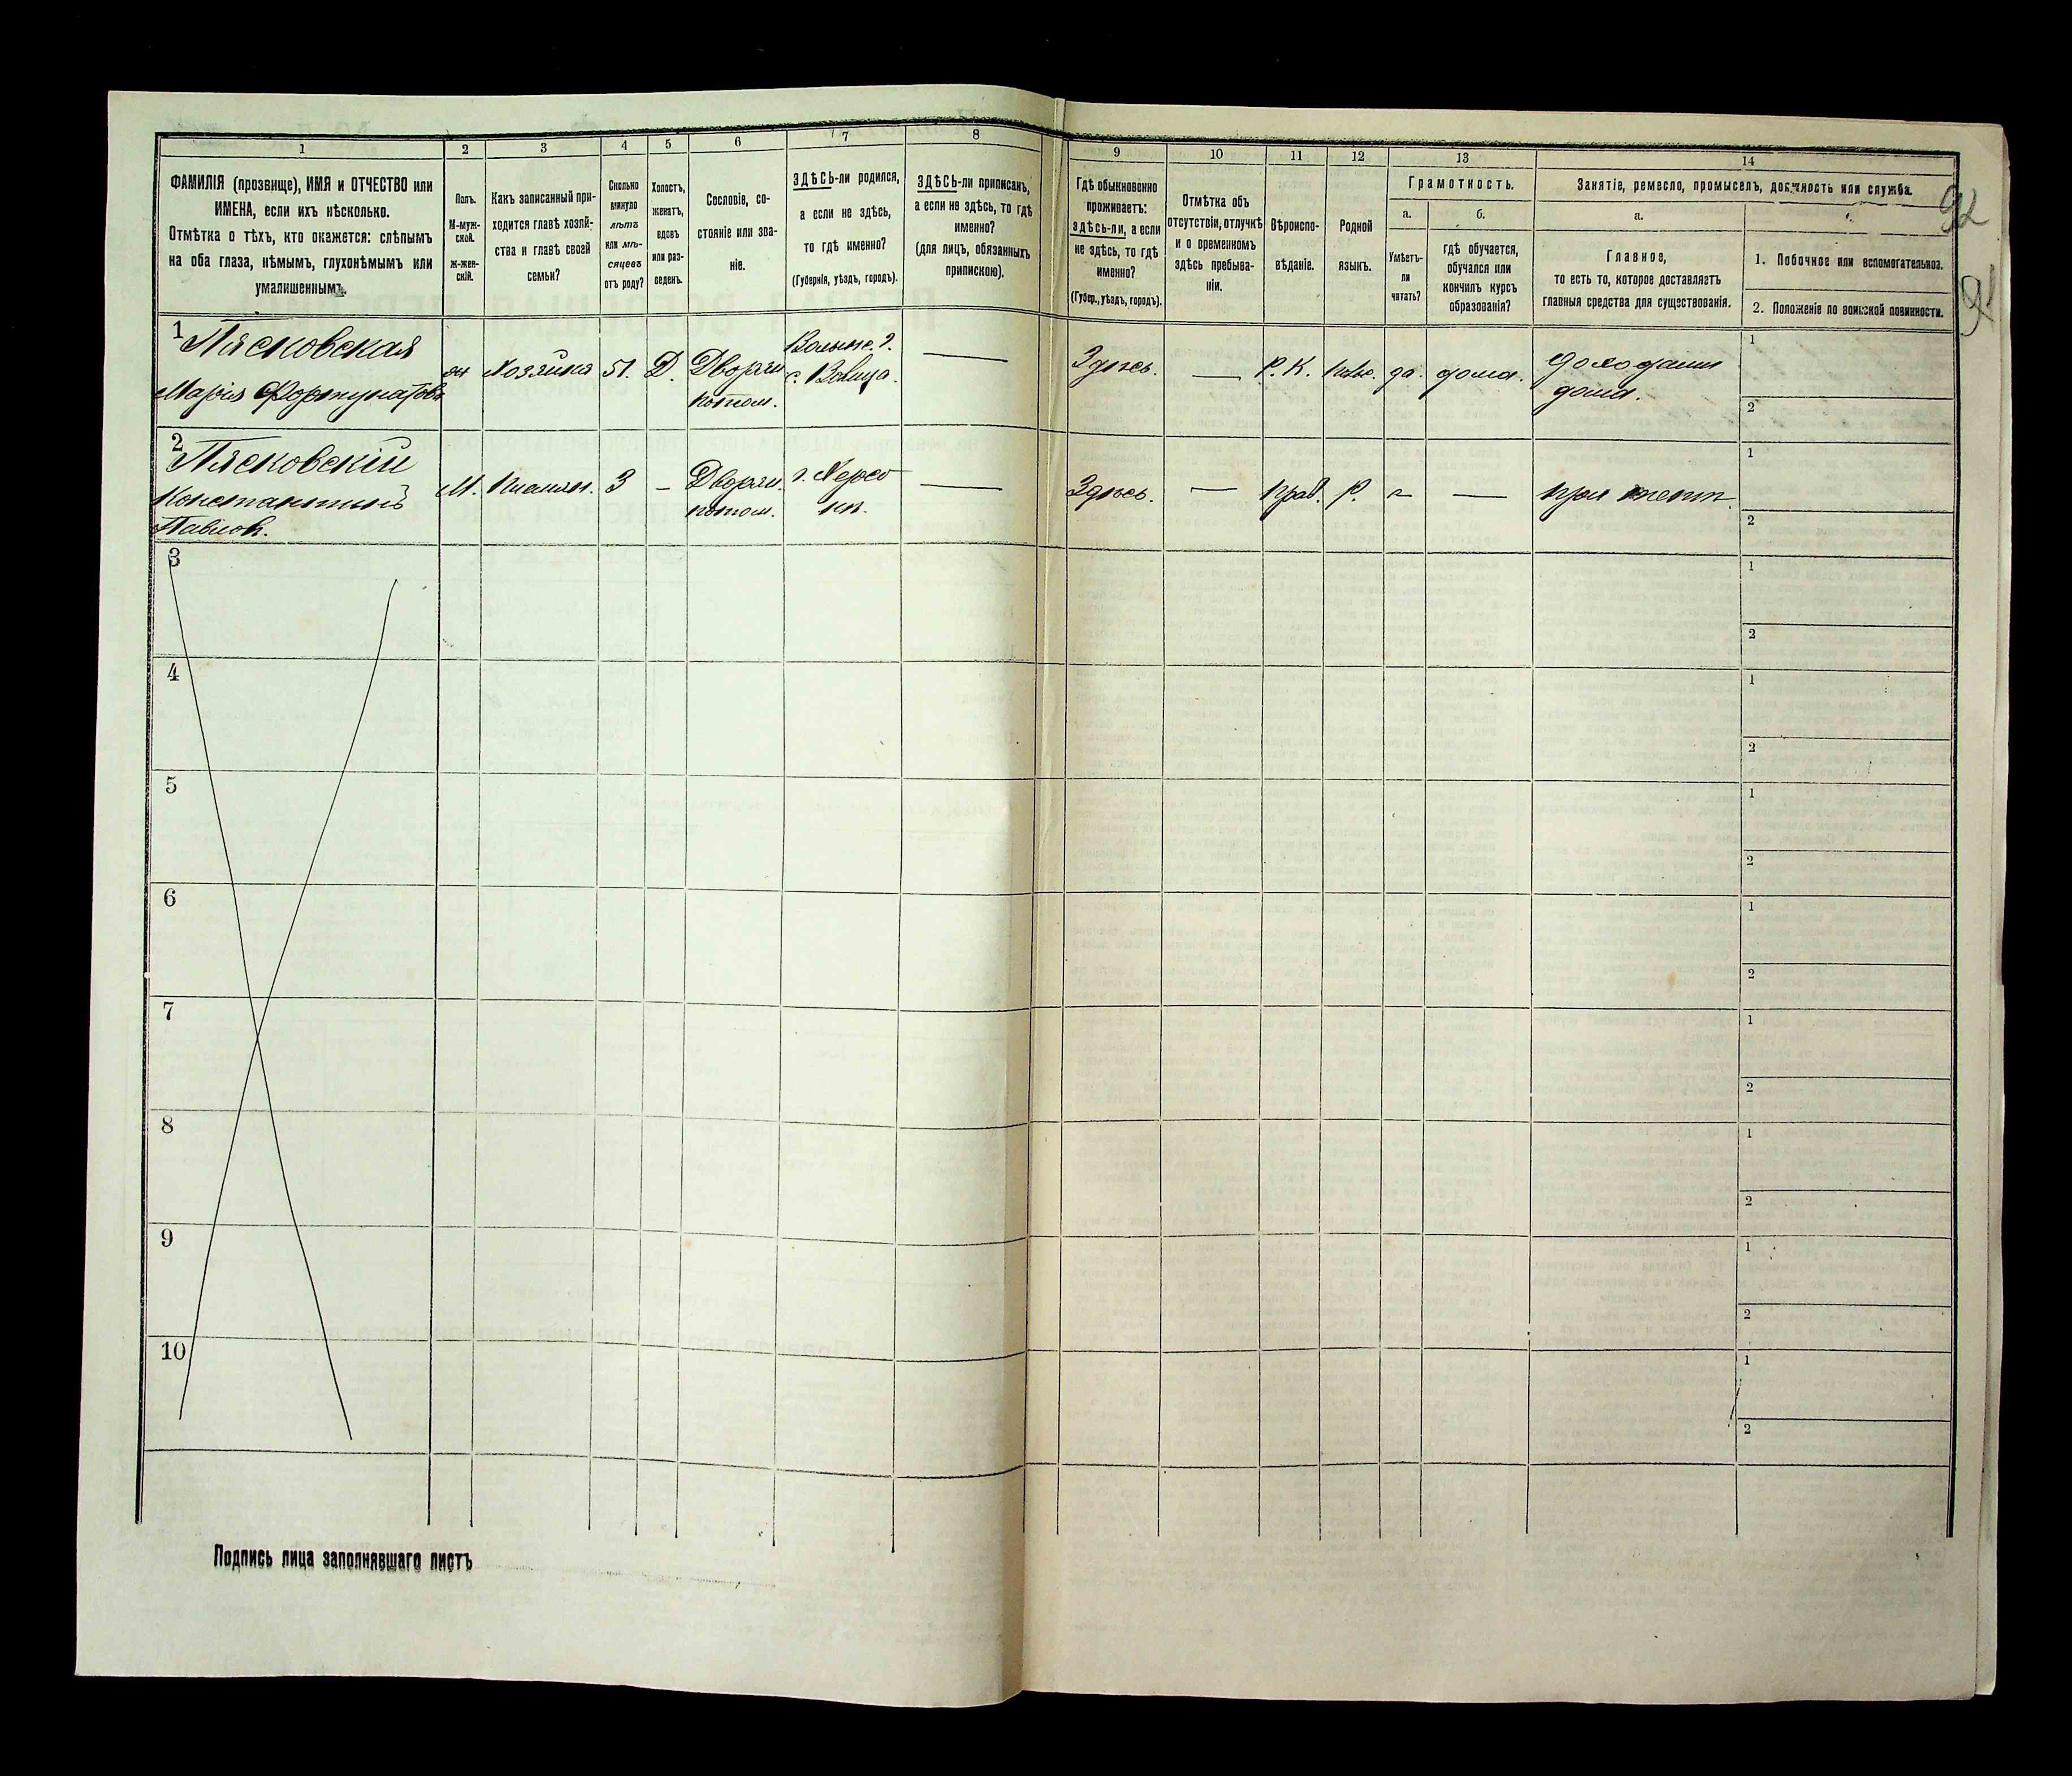 1 2 3 4 5 6 7 8 9 10 11 12 13 14
ФАМИЛІЯ (прозвище), ИМЯ и ОТЧЕСТВО или
ИМЕНА, если ихъ нѣсколько.
Отмѣтка о тѣхъ, кто окажется: слѣпымъ
на оба глаза, нѣмымъ, глухонѣмымъ или
умалишеннымъ.
Полъ.
М-муж-
ской.
Ж-жен-
скій.
Какъ записанный при-
ходится главѣ хозяй-
ства и главѣ своей
семьи?
Сколько
минуло
лѣтъ
или мѣ-
сяцевъ
отъ роду?
Холостъ,
женатъ,
вдовъ
или раз-
веденъ.
Сословіе, со-
стояніе или зва-
ніе.
ЗДѢСЬ-ли родился,
а если не здѣсь,
то гдѣ именно?
(Губернія, уѣздъ, городъ).
ЗДѢСЬ-ли приписанъ,
а если не здѣсь, то гдѣ
именно?
(для лицъ, обязанныхъ
припискою).
Гдѣ обыкновенно
проживаетъ:
здѣсь-ли, а если
не здѣсь, то гдѣ
именно?
(Губер., уѣздъ, городъ).
Отмѣтка объ
отсутствіи, отлучкѣ
и о временномъ
здѣсь пребыва-
ніи.
Вѣроиспо-
вѣданіе.
Родной
языкъ.
Грамотность.
а.
Умѣетъ-
ли
читать?
б.
гдѣ обучается,
обучался или
кончилъ курсъ
образованія?
Занятіе, ремесло, промыселъ, должность или служба.
а.
Главное,
то есть то, которое доставляетъ
главныя средства для существованія.
1. Побочное или вспомогательное.
2. Положеніе по воинской повинности.
92
91
1 Пясковская
Марія Фортунатов
Хозяйка
51.
Д.
Дворян
потом.
Волынс. г.
Здѣсь.
Р. К.
да.
дома.
дома.
1
2
2 Пясковскій
Константинъ
Павлов.
М.
Племян.
3
Дворян.
потом.
г. Херсо
нъ.
Здѣсь.
Прав.
Р.
при теткѣ.
1
2
3
1
2
4
1
2
5
1
2
6
1
2
7
1
2
8
1
2
9
1
2
10
1
2
Подпись лица заполнявшаго листъ